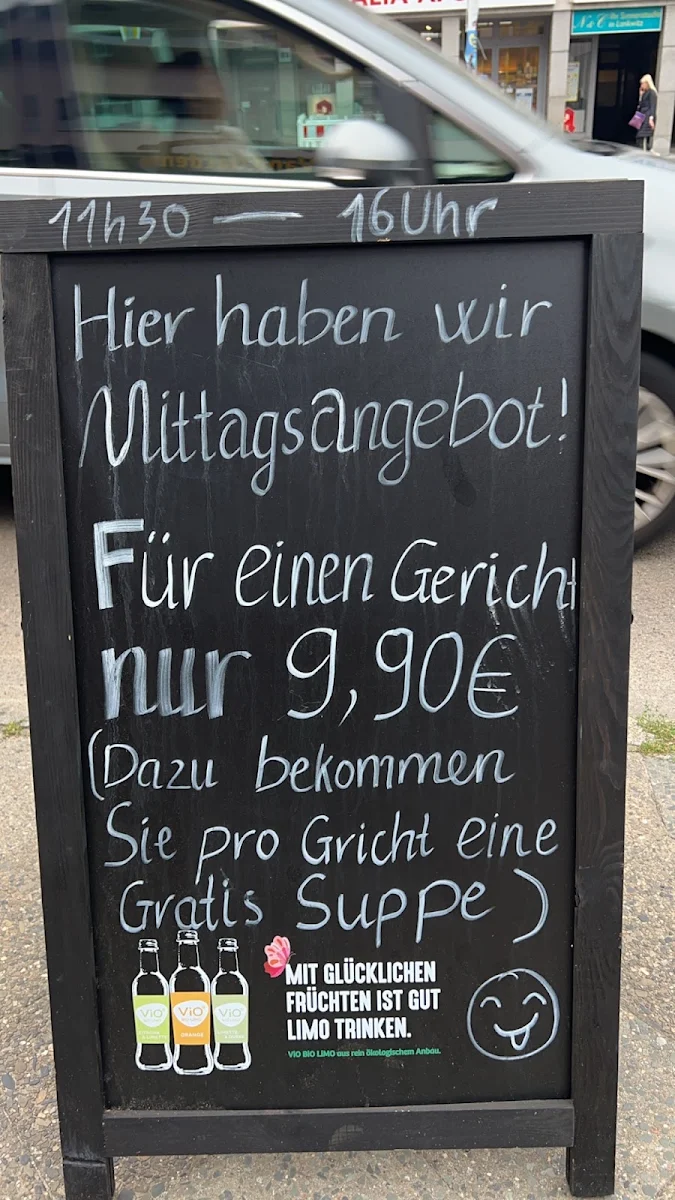 11h30 — 16Uhr
Hier haben wir
Mittagsangebot!
Für einen Gericht
nur 9,90€
(Dazu bekommen
Sie pro Gricht eine
Gratis Suppe)
ViO ViO ViO
ORANGE
MIT GLÜCKLICHEN
FRÜCHTEN IST GUT
LIMO TRINKEN.
ViO BiO LiMO aus rein ökologischem Anbau.